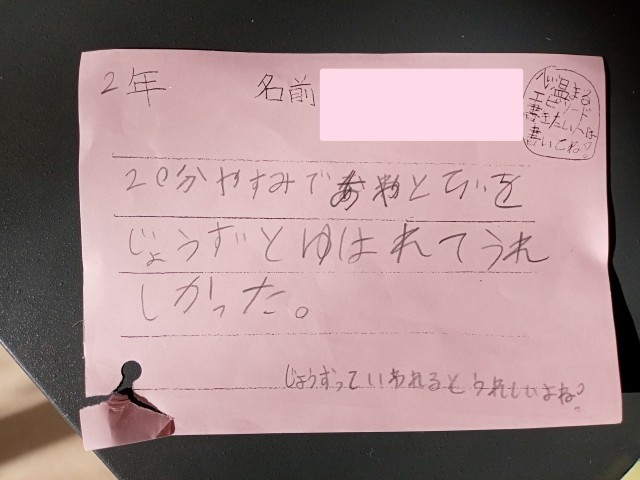 2年 名前
心温まる
エピソード
書きたい人は
書いてね♡
20分やすみで とびを
じょうずとゆはれてうれ
しかった。
じょうずっていわれるとうれしいよね♡